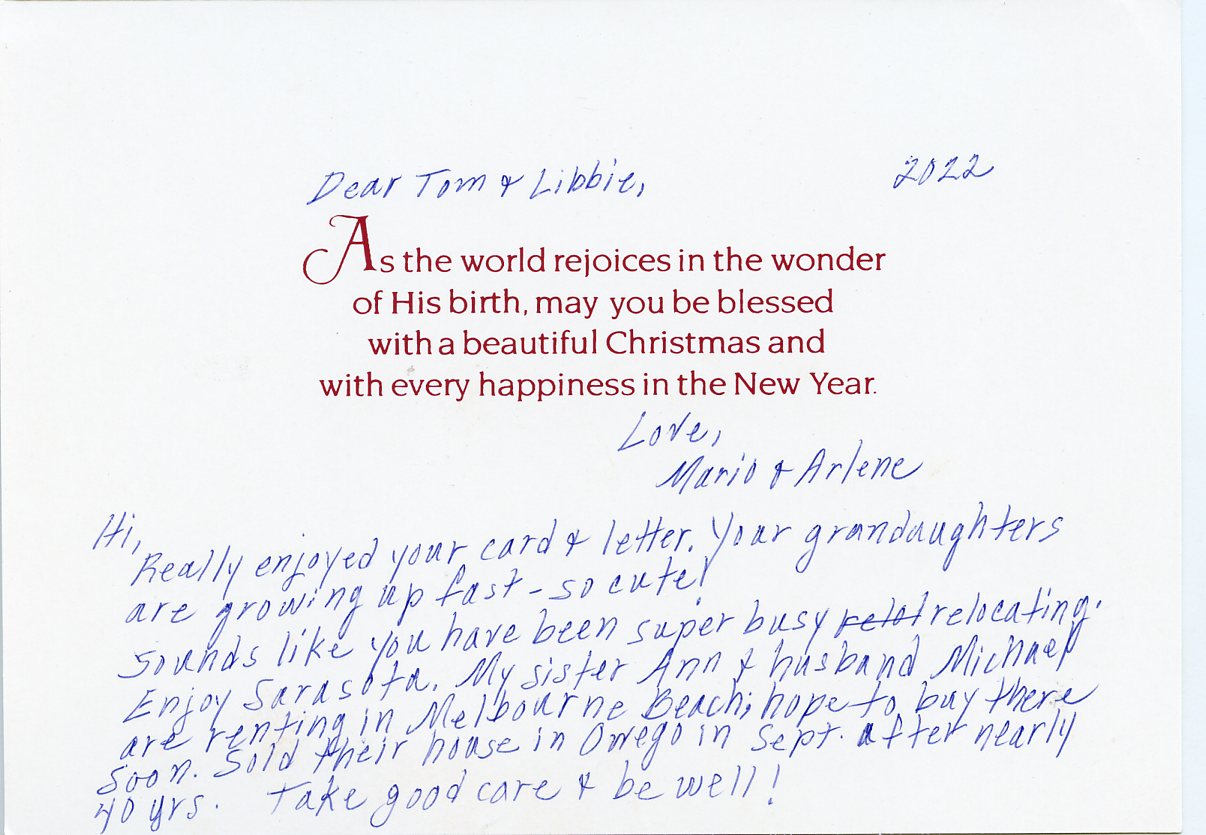 Dear Tom & Libbie, 2022
As the world rejoices in the wonder
of His birth, may you be blessed
with a beautiful Christmas and
with every happiness in the New Year.
Love,
Mario & Arlene
Hi,
Really enjoyed your card & letter. Your grandaughters
are growing up fast - so cute!
Sounds like you have been super busy relocating.
Enjoy Sarasota. My sister Ann & husband Michael
are renting in Melbourne Beach; hope to buy there
soon. Sold their house in Owego in Sept. after nearly
40 yrs. Take good care & be well!